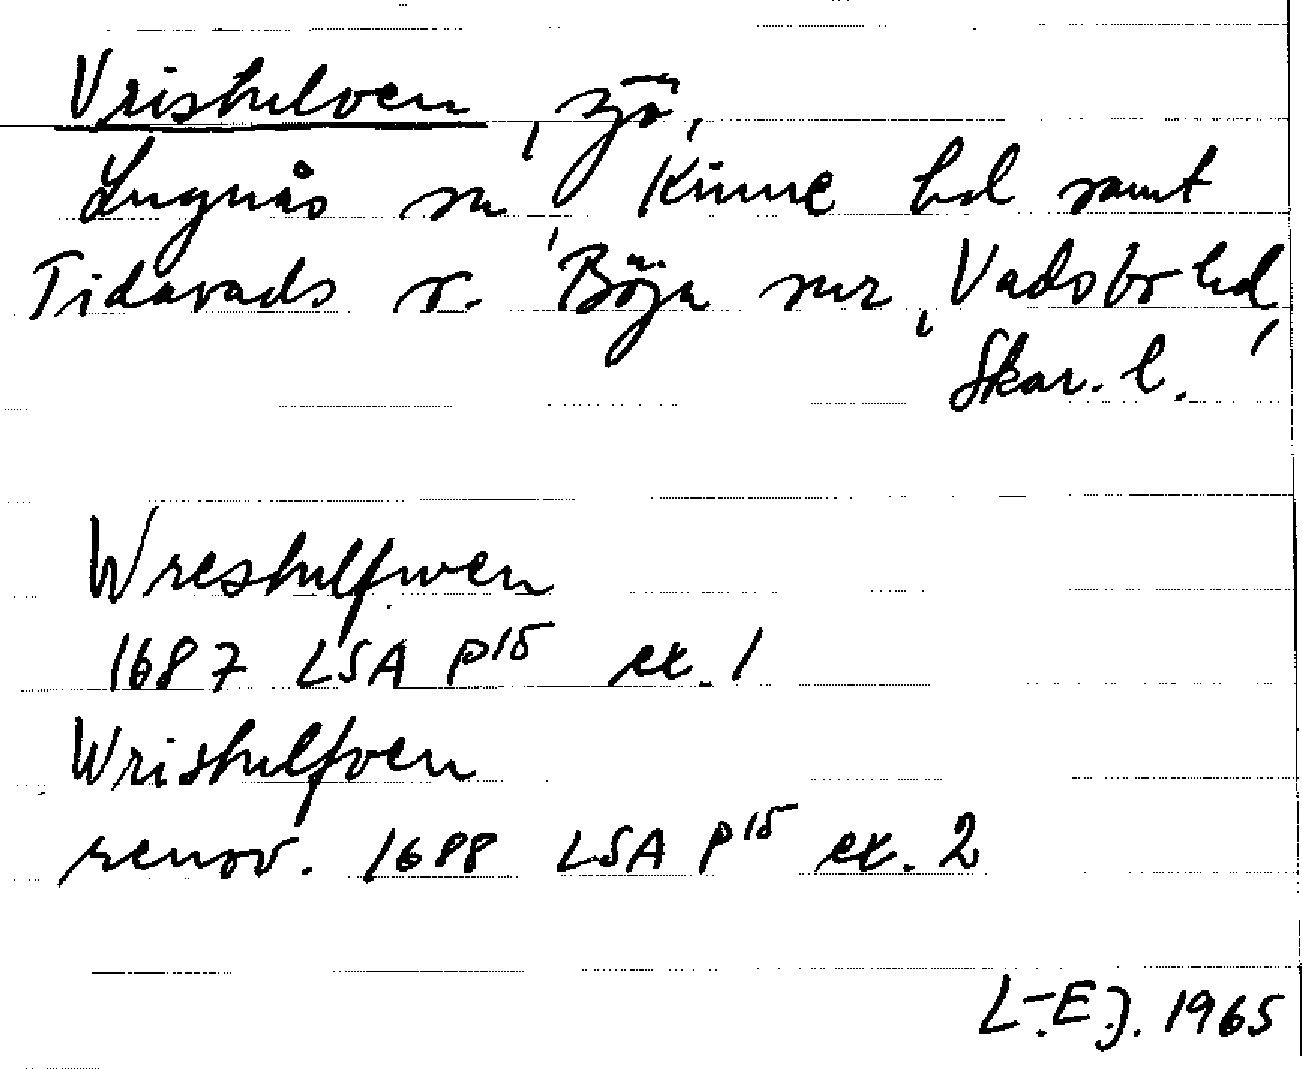 Vristulven, sjö,
Lugnås sn, Kinne hd samt
Tidavads o. Böja snr, Vadsbo hd,
Skar. l.
Wrestulfwen
1687 LSA P15 ex. 1
Wristulfven
renov. 1688 LSA P15 ex. 2
L-E.J. 1965